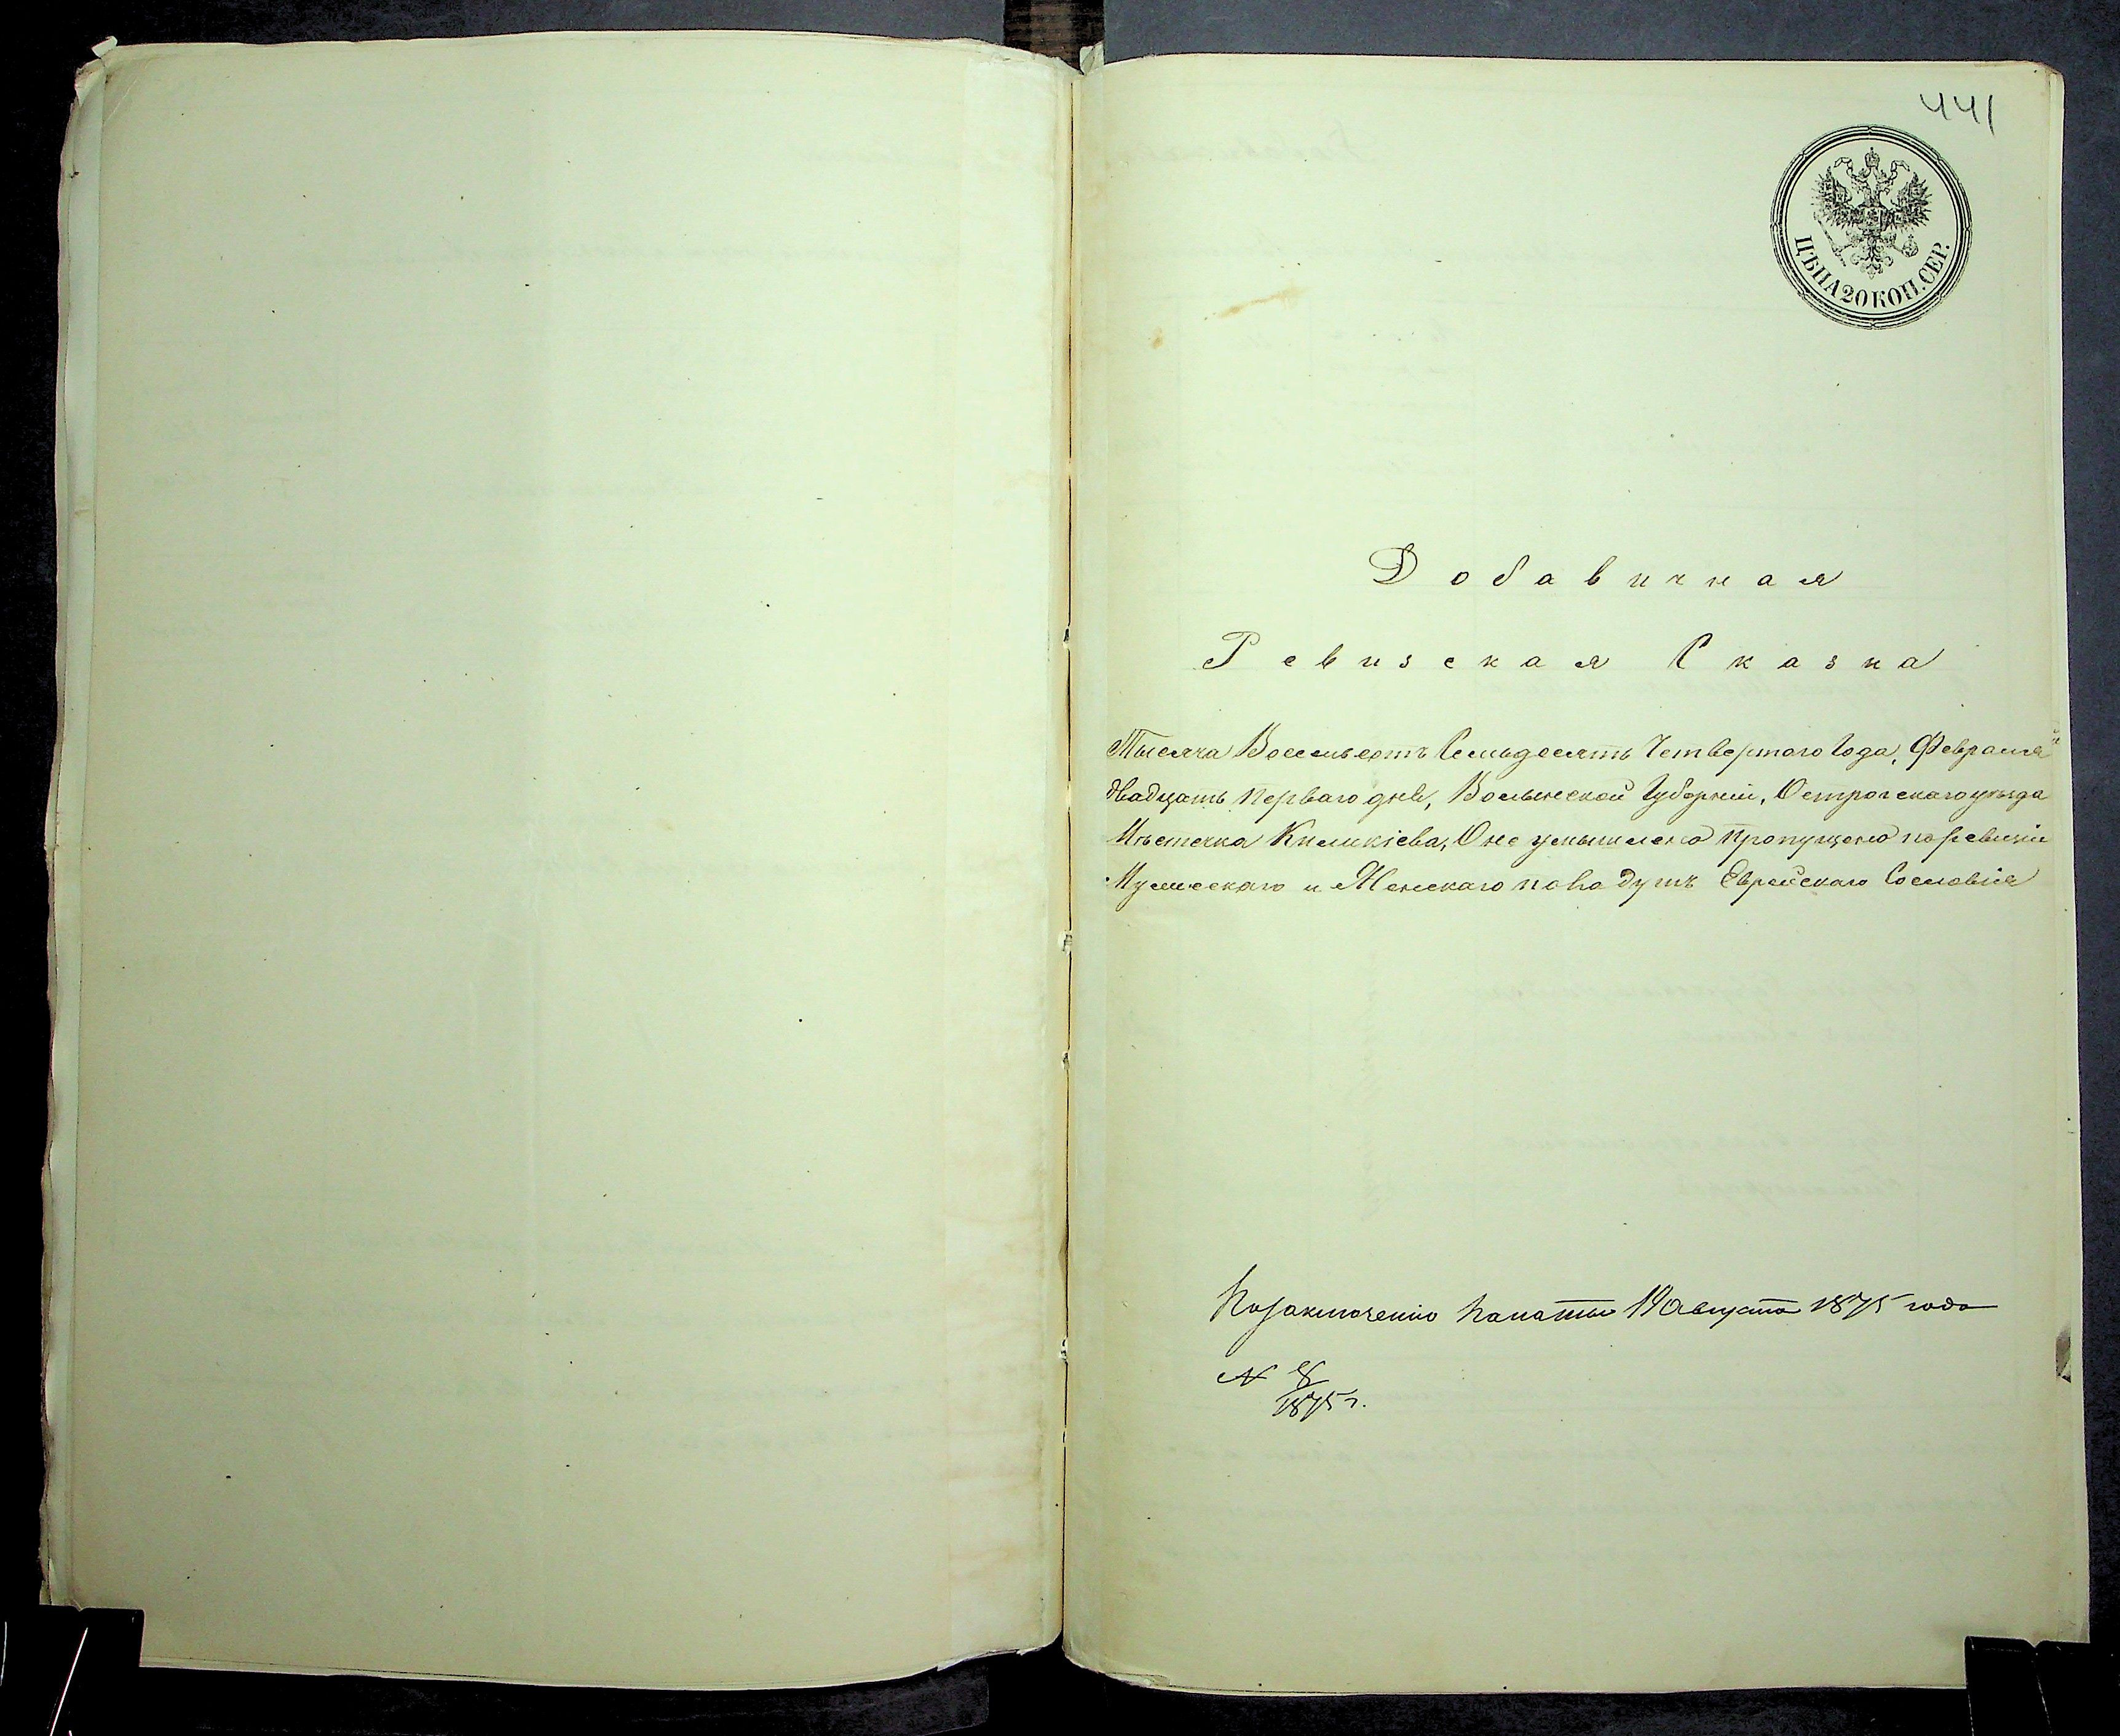 441
ЦѢНА 20 КОП. СЕР.
Добавичная
Ревизская Сказка
Тысяча Восемьсотъ Семьдесятъ Четвертого Года, Февраля
двадцать перваго дня, Волынской Губерніи, Острогскаго уѣзда
Мѣстечка Киликіева, О не умышлено пропущено по ревизіи
Мужескаго и Женскаго пола душъ Еврейскаго Сословія
По заключенію палаты 19 Августа 1875 года
№ 8
1875 г.